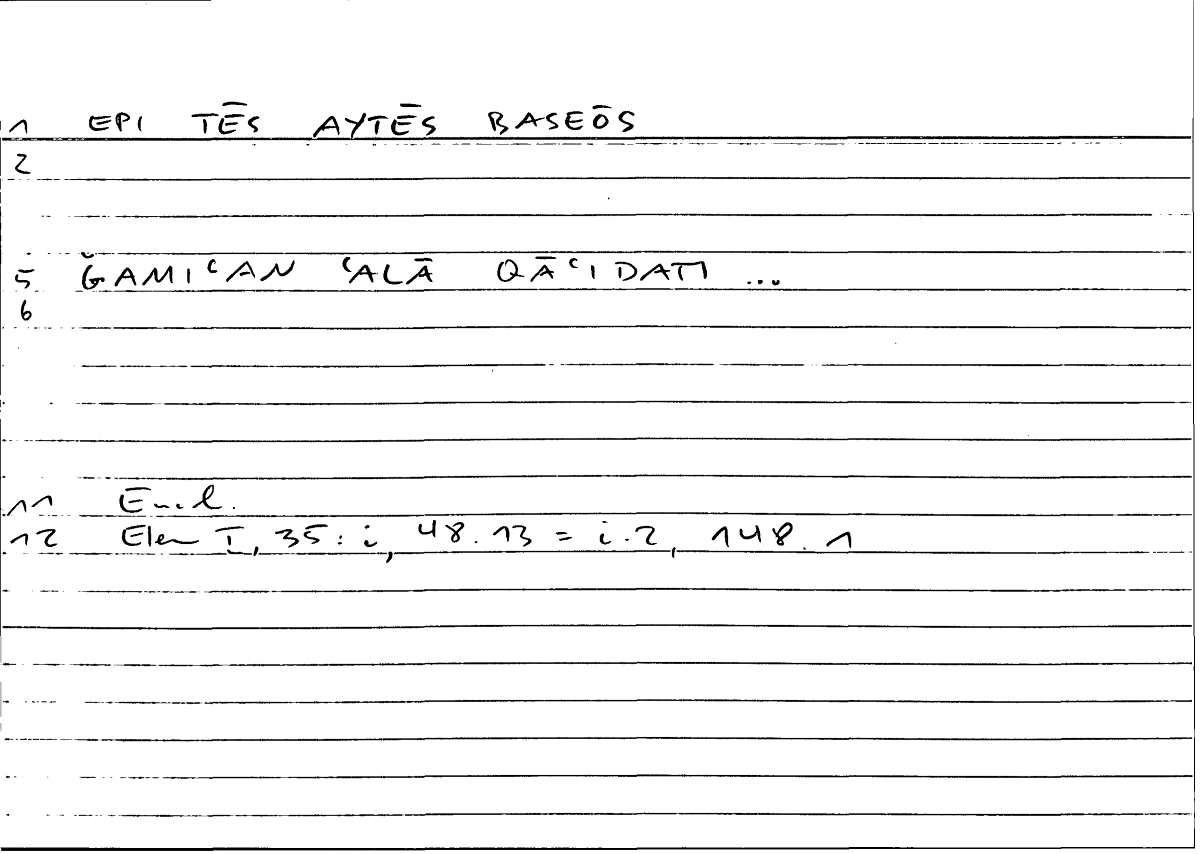 1 EPI TĒS AYTĒS BASEŌS
2
5 ǦAMIʿAN ʿALĀ QĀʿIDATI ...
6
11 Eucl.
12 Elem I, 35 : i, 48.13 = i.2, 148.1